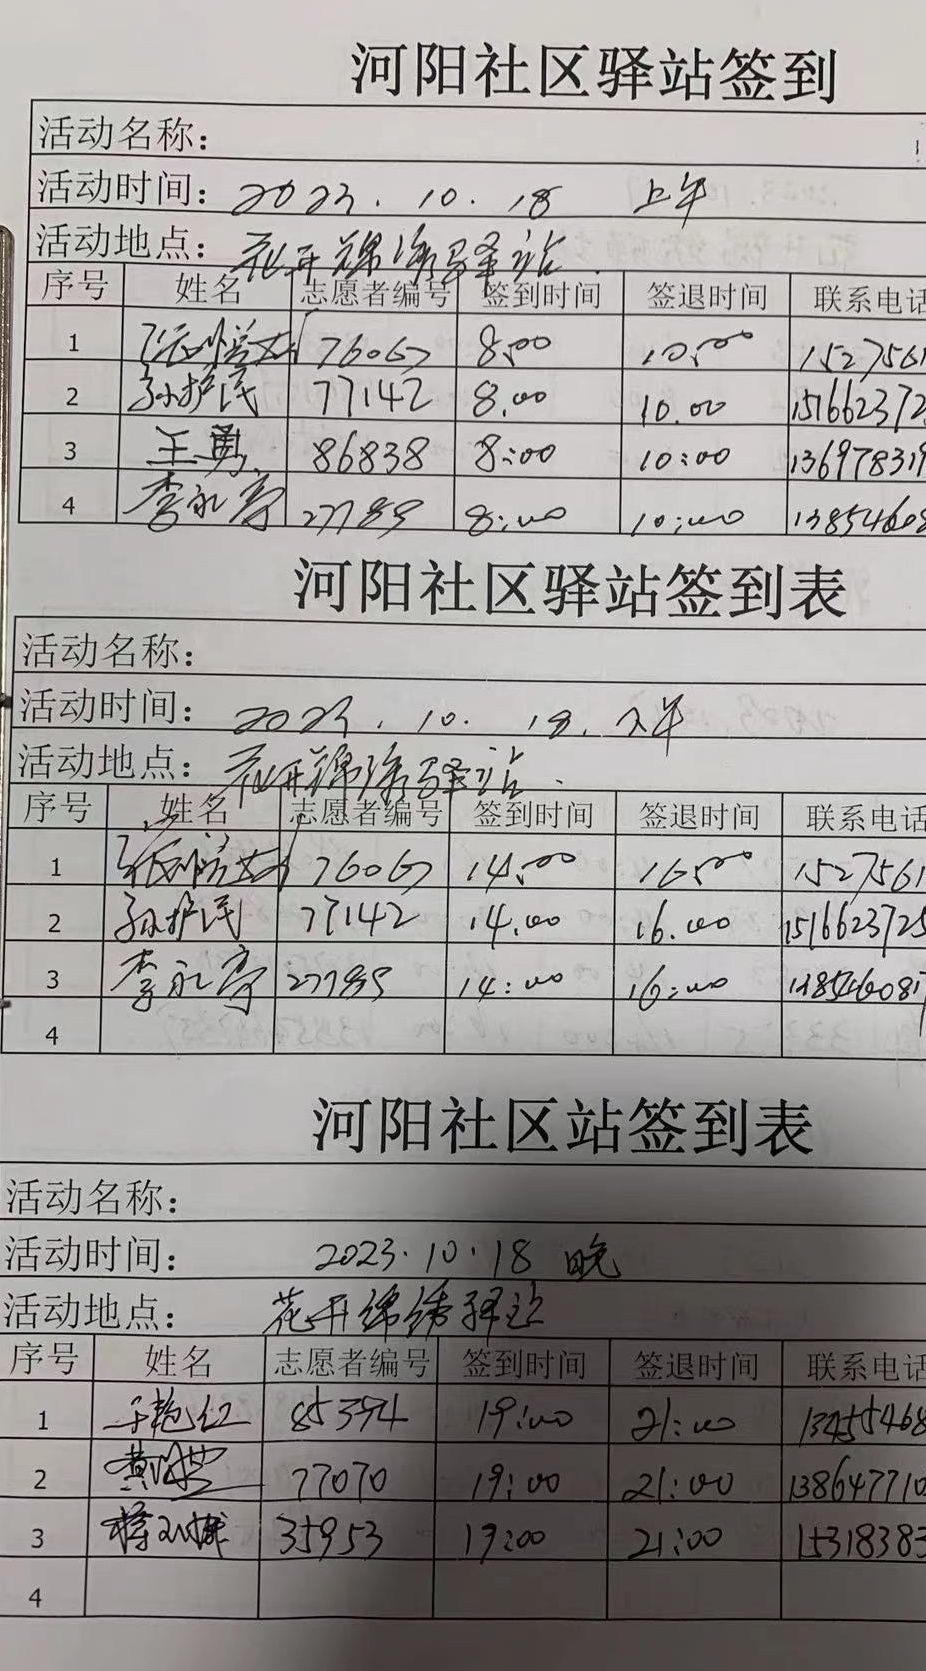 河阳社区驿站签到
活动名称：
活动时间：2023.10.18 上午
活动地点：花开锦绣驿站.
序号 姓名 志愿者编号 签到时间 签退时间 联系电话
1 76067 8:00 10:00 1527561
2 孙护民 77142 8:00 10.00 151662372
3 王勇 86838 8:00 10:00 136978319
4 李永亭 27789 8:00 10:00 13854608
河阳社区驿站签到表
活动名称：
活动时间：2023.10.18. 下午
活动地点：花开锦绣驿站.
序号 姓名 志愿者编号 签到时间 签退时间 联系电话
1 76067 14:00 16:00 1527561
2 孙护民 77142 14.00 16.00 1516623725
3 李永亭 27789 14:00 16:00 138546081
4
河阳社区站签到表
活动名称：
活动时间：2023.10.18 晚
活动地点：花开锦绣驿站
序号 姓名 志愿者编号 签到时间 签退时间 联系电话
1 85394 19:00 21:00 13455468
2 77070 19:00 21:00 138647710
3 35953 19:00 21:00 15318383
4